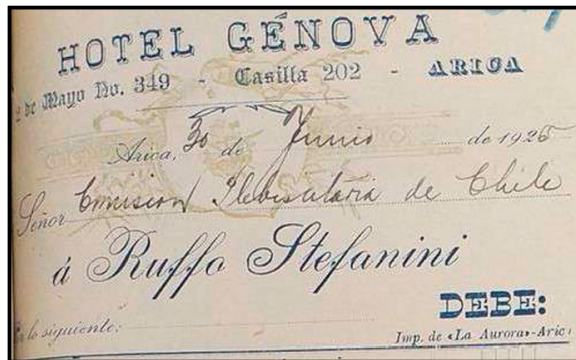 HOTEL GÉNOVA
de Mayo No. 349 - Casilla 202 - ARICA
Arica, 30 de Junio de 1925
Señor Comision Plebiscitaria de Chile
á Ruffo Stefanini
DEBE:
lo siguiente:
Imp. de «La Aurora»-Aric